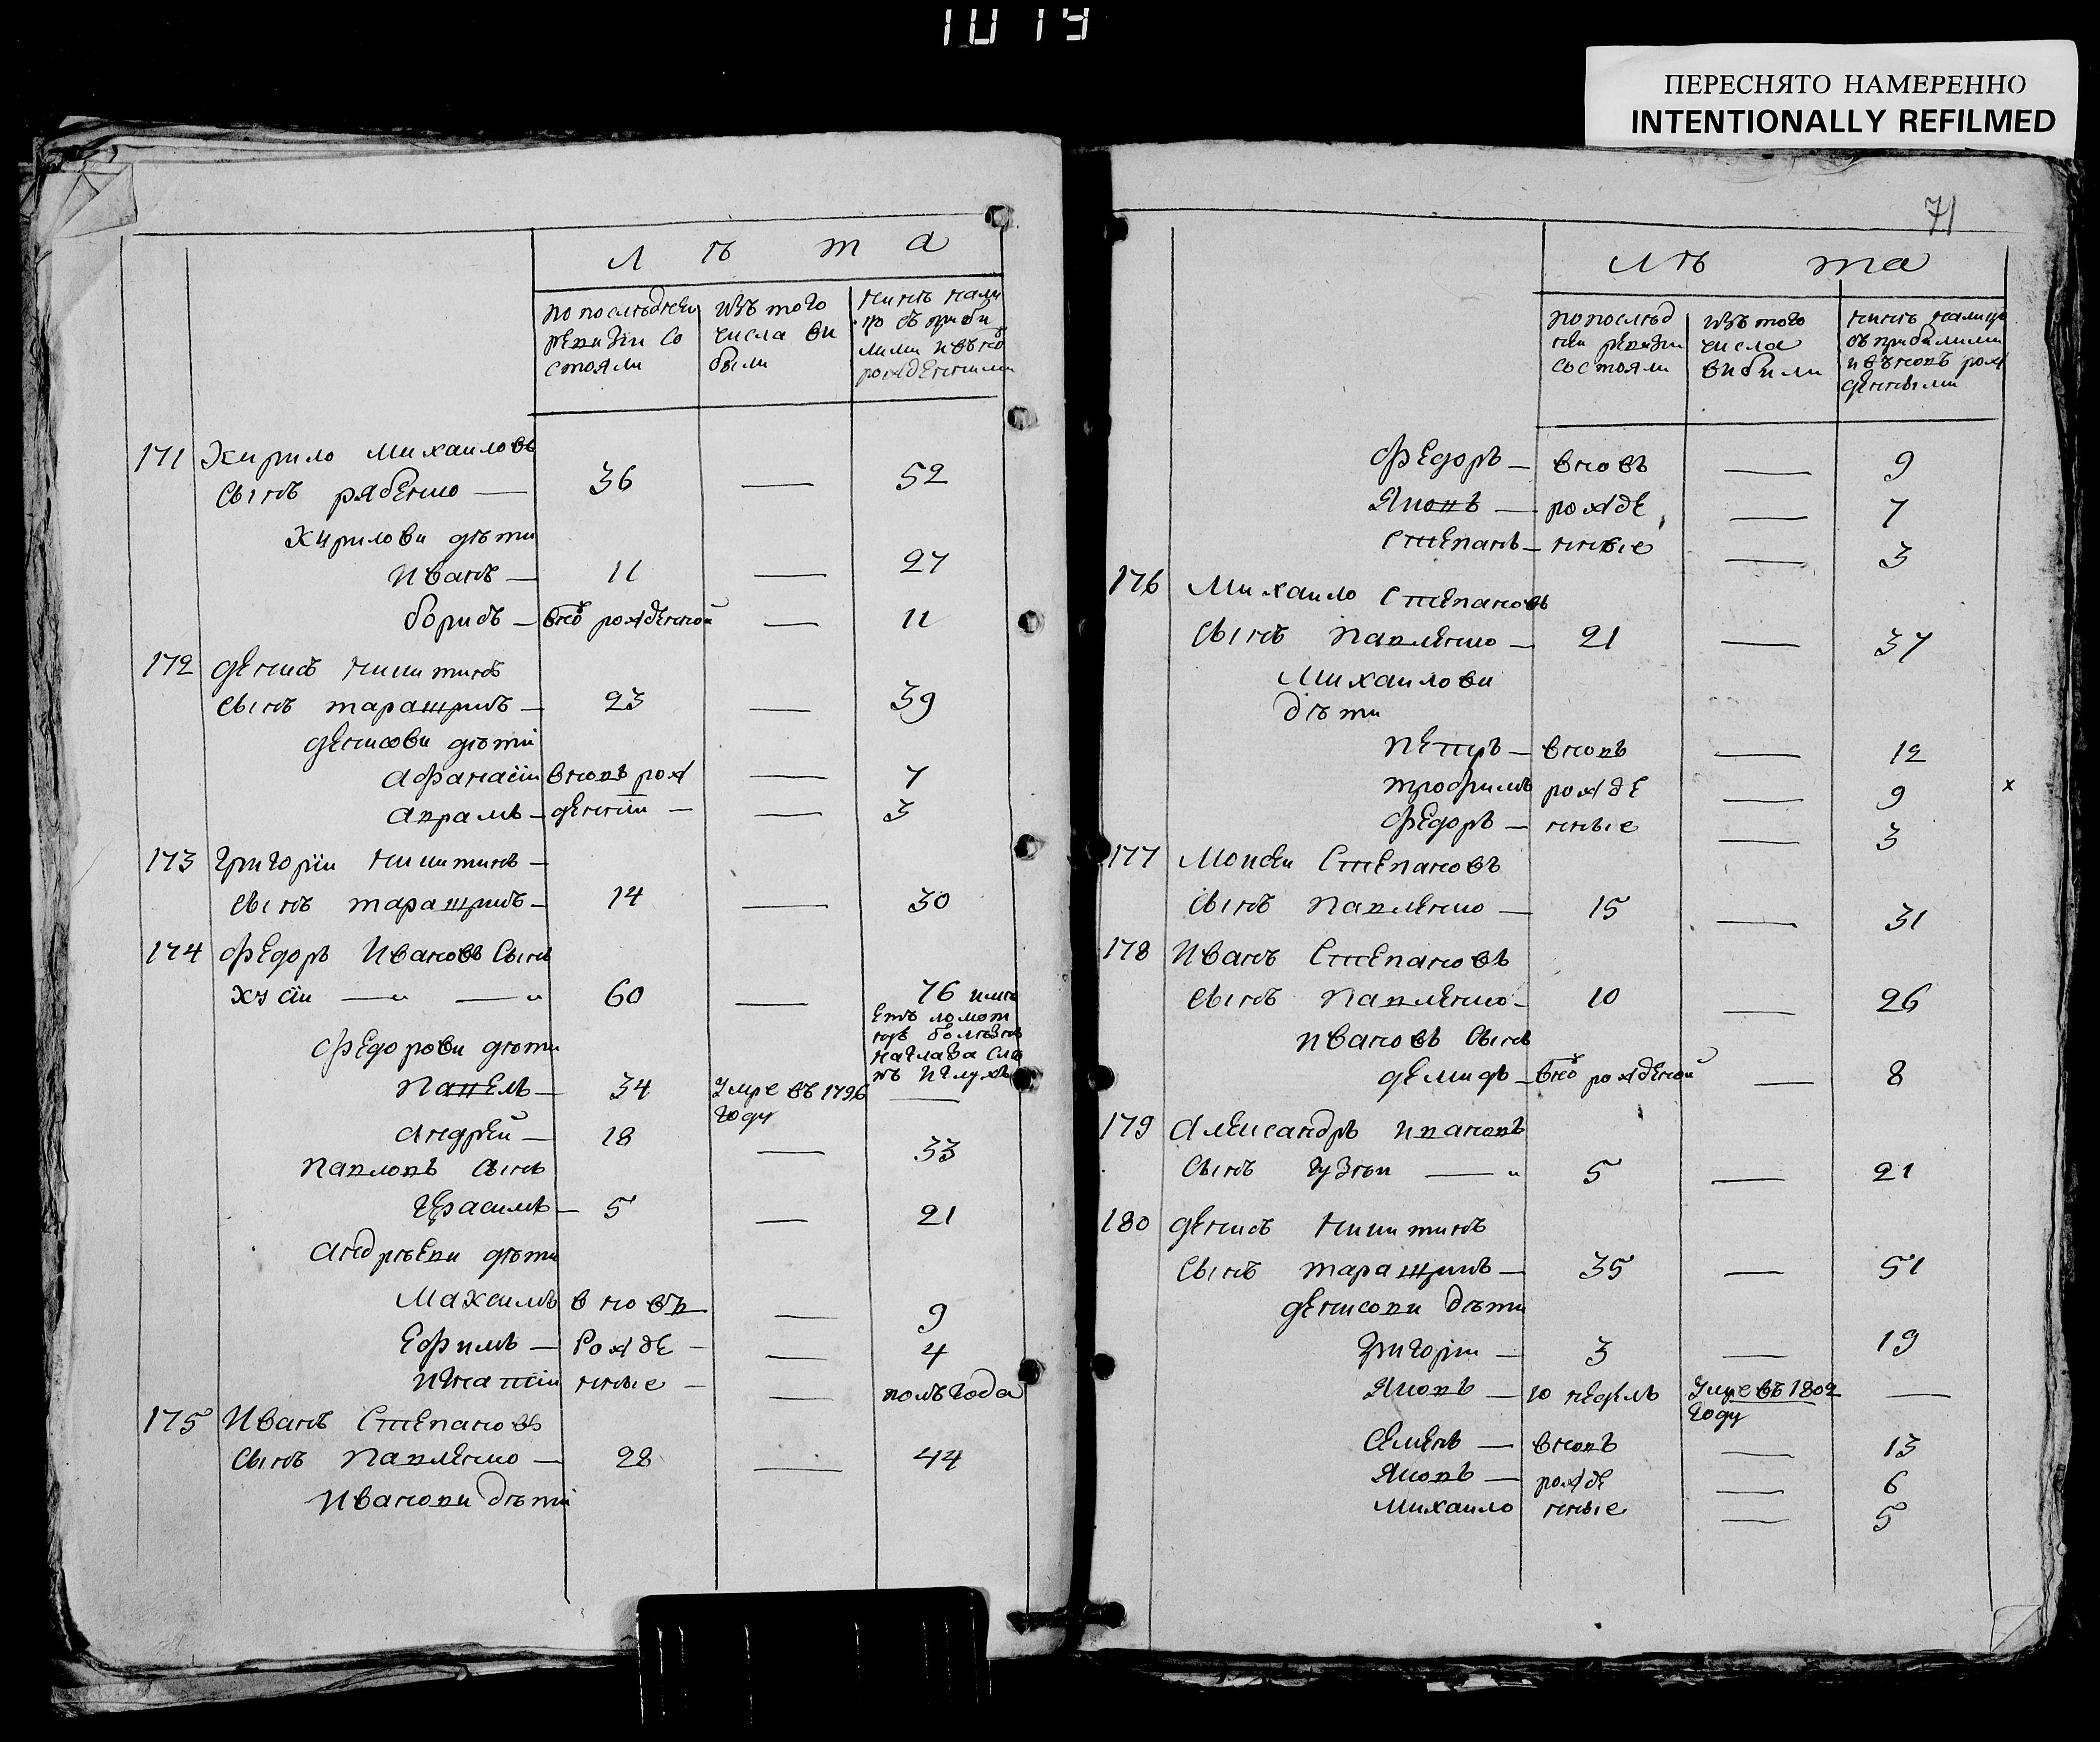 1019
ПЕРЕСНЯТО НАМЕРЕННО
INTENTIONALLY REFILMED
Лѣта
по послѣдней ревизіи состояли
изъ того числа выбыли
нынѣ на лицо съ прибылими и вновь рожденними
171 Кирило Михаиловъ
сынъ рябенко — 36 — 52
Кирилови дѣти
Иванъ — 11 — 27
борисъ — вно рожденной — 11
172 Денисъ никитинъ
сынъ таращикъ — 23 — 39
Денисови дѣти
Афанасіи вновь рож — 7
Аврамъ — деніи — — 3
173 Григоріи никитинъ —
сынъ таращикъ — 14 — 30
174 Федоръ Ивановъ сынъ
Кусіи — „ — „ 60 — 76 имѣетъ ломотную болѣзнь на глаза слѣпъ и глухъ
Федорови дѣти
Павелъ — 34 Умре въ 1796 году —
Андрей — 18 — 33
Павловъ сынъ
Герасимъ — 5 — 21
Андрѣеви дѣти
Максимъ вновъ — 9
Ефимъ — рожде — — 4
Игнатіи нные — — полъ года
175 Иванъ Степановъ
сынъ Павленко — 28 — 44
Иванови дѣти
71
Лѣта
по послѣдней ревизіи состояли
изъ того числа вибили
нинѣ на лицо съ прибилими и вновь рожденными
Федоръ — вновъ — 9
Яковъ — рожде — 7
Степанъ — нные — 3
176 Михаило Степановъ
сынъ Павленко — 21 — 37
Михаилови
дѣти
Петръ — вновь — 12
трофимъ рожде — 9 x
Федоръ — нные — 3
177 Моисеи Степановъ
сынъ Павленко — 15 — 31
178 Иванъ Степановъ
сынъ Павленко — 10 — 26
Ивановъ сынъ
Демидъ — вно рожденой — 8
179 Александръ Ивановъ
сынъ Гузѣи — „ 5 — 21
180 Денисъ никитинъ
сынъ таращикъ — 35 — 51
Денисови дѣти
Григоріи — 3 — 19
Яковъ — 10 недѣль Умре въ 1802 году —
Семенъ — вновъ — 13
Яковъ — рожде — 6
Михаило нные — 5